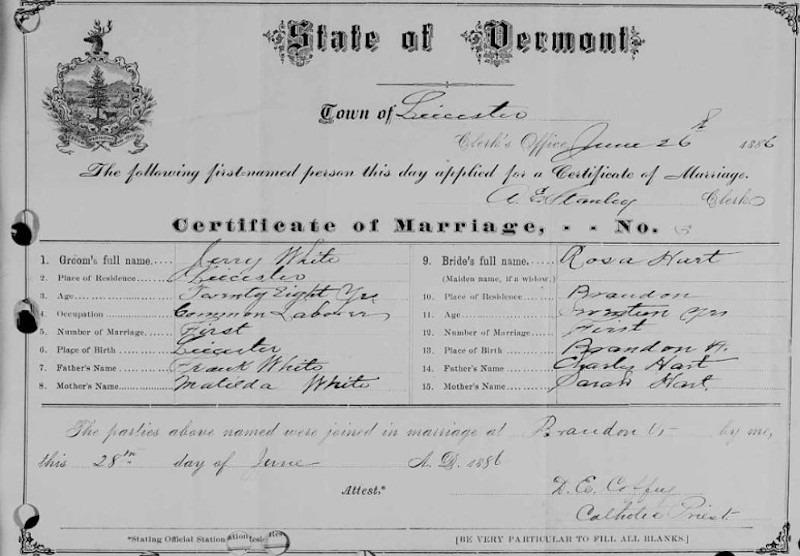 State of Vermont
Town of Leicester
Clerk's Office, June 26th 1886
The following first-named person this day applied for a Certificate of Marriage.
A. E. Stanley Clerk
Certificate of Marriage, - - No.
1. Groom's full name Jerry White
2. Place of Residence Leicester
3. Age Twenty Eight Yrs
4. Occupation Common Laborer
5. Number of Marriage First
6. Place of Birth Leicester
7. Father's Name Frank White
8. Mother's Name Matilda White
9. Bride's full name Rosa Hart
(Maiden name, if a widow.)
10. Place of Residence Brandon
11. Age Yrs
12. Number of Marriage First
13. Place of Birth Brandon
14. Father's Name Charles Hart
15. Mother's Name Sarah Hart
The parties above named were joined in marriage at Brandon Vt by me,
this 28th day of June A. D. 1886
Attest,* D. E. Coffey
Catholic Priest.
*Stating Official Station
[BE VERY PARTICULAR TO FILL ALL BLANKS.]